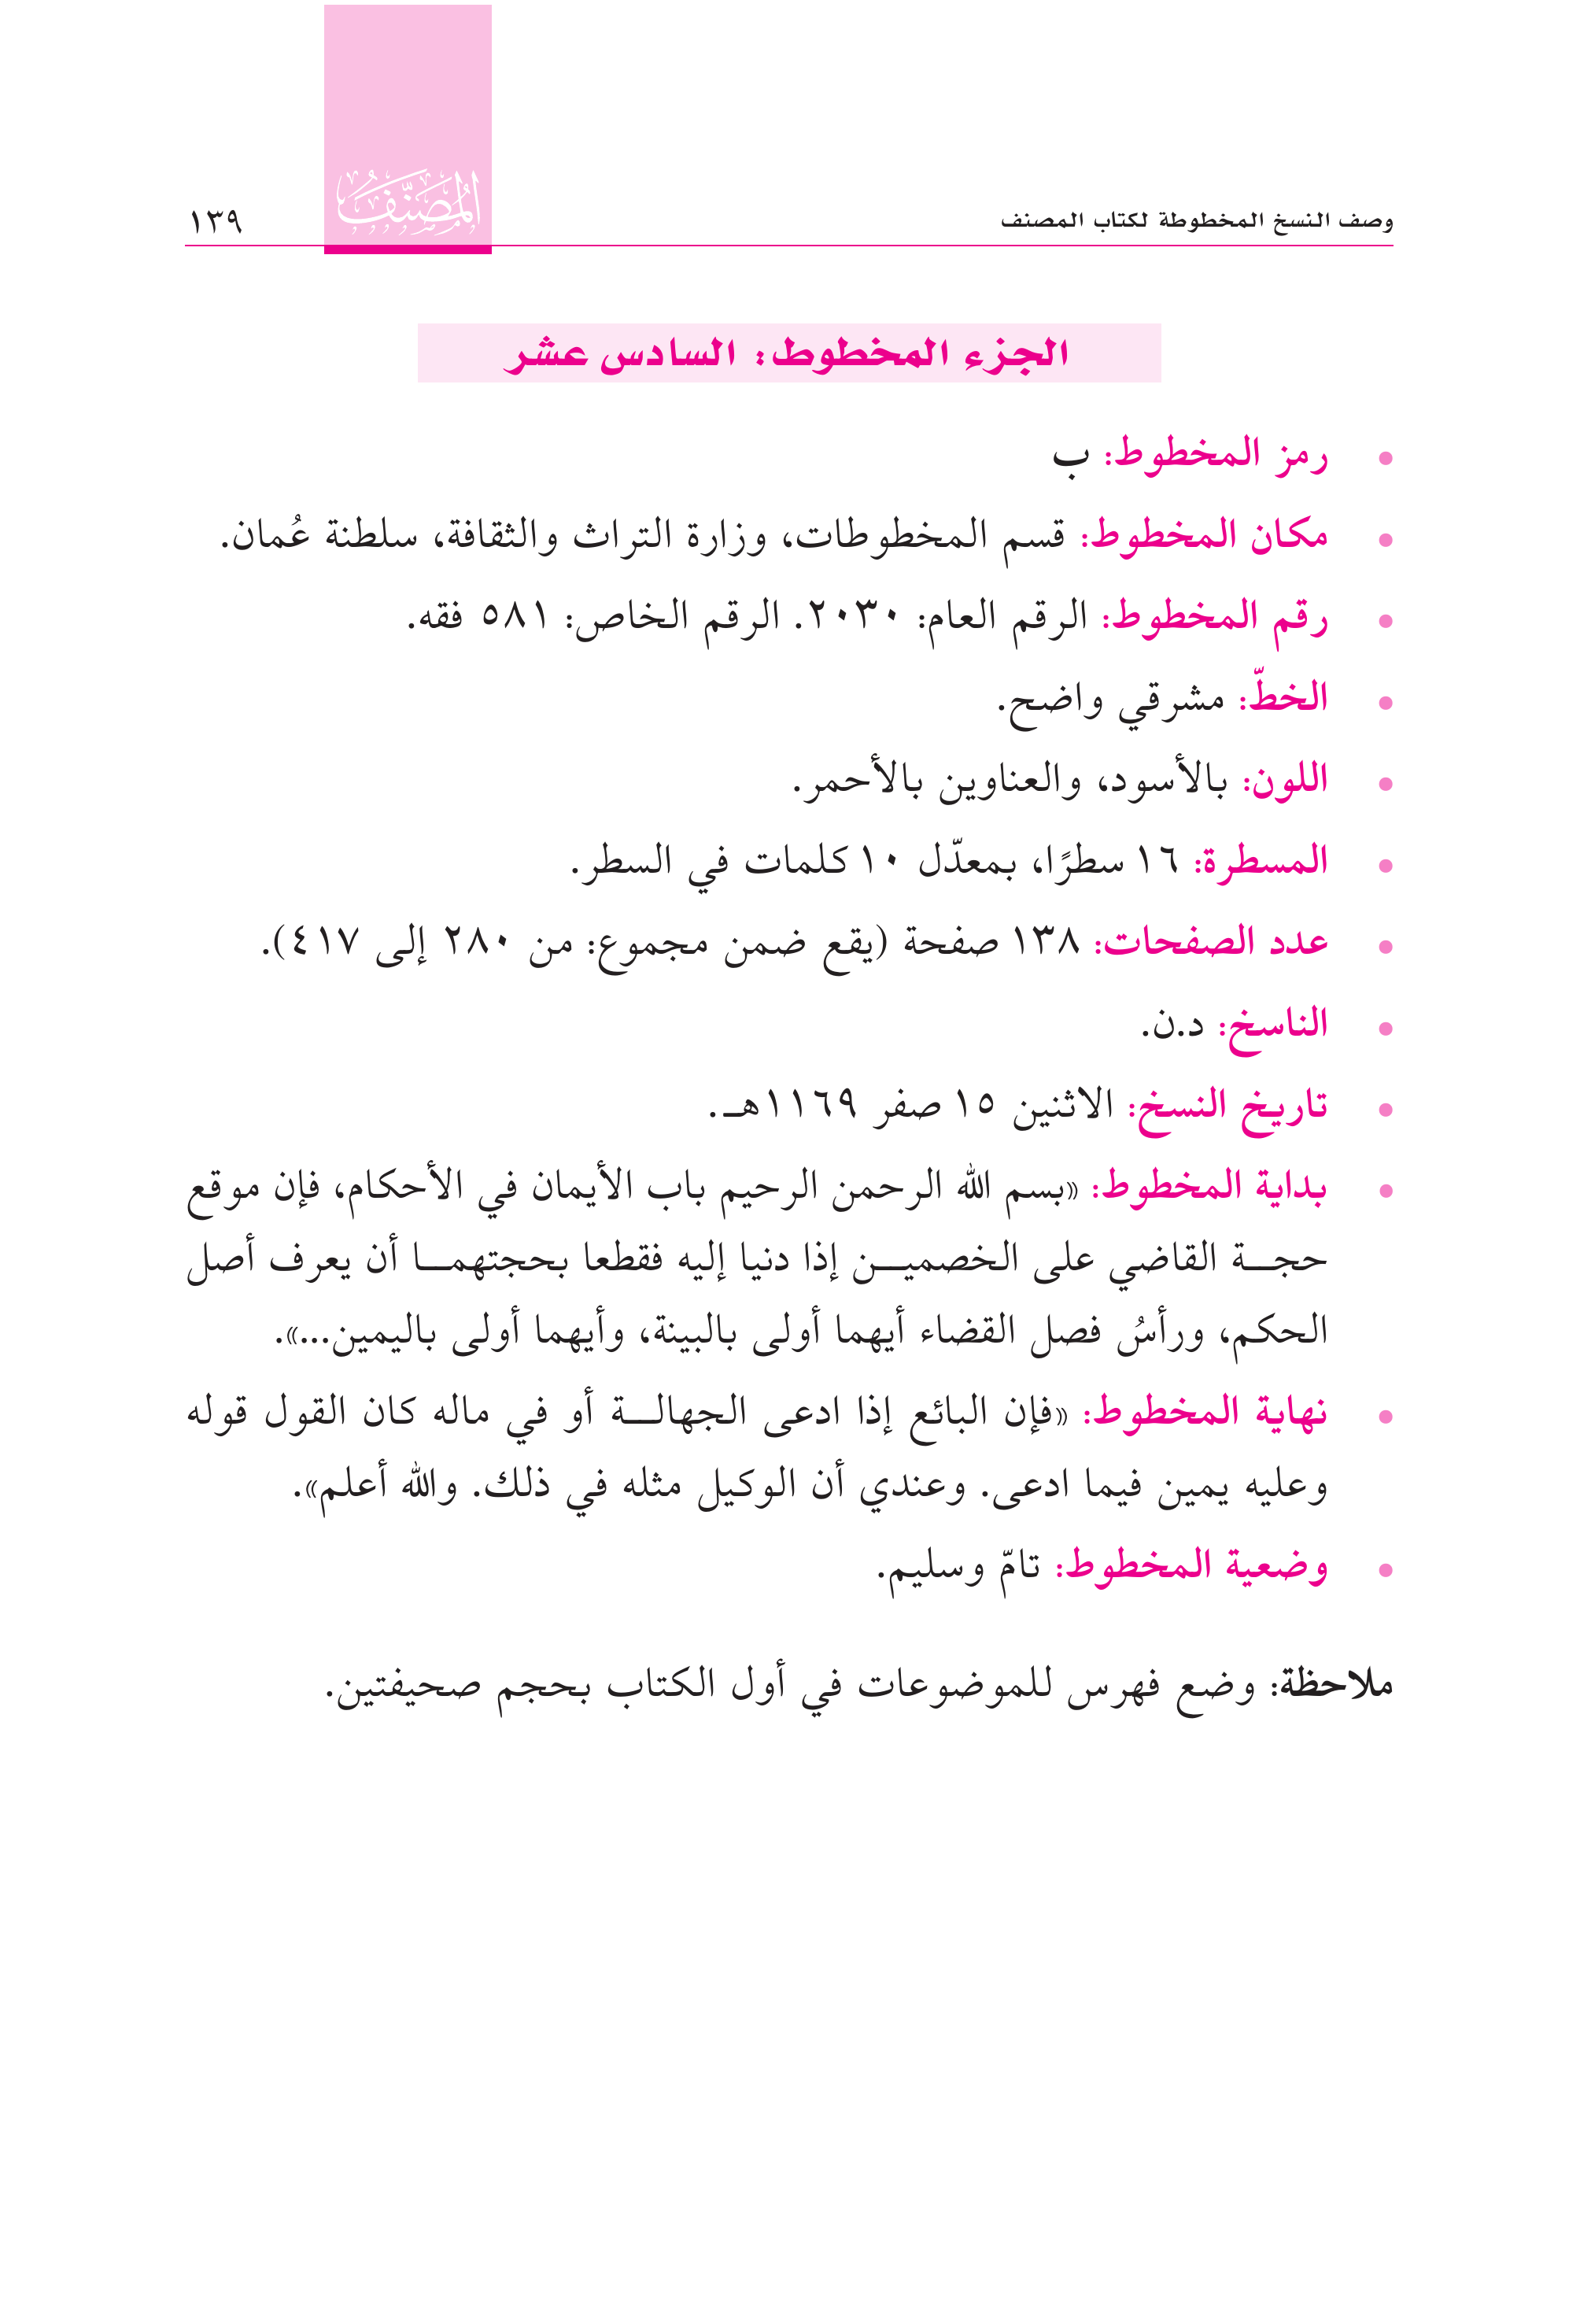 وصف النسخ المخطوطة لكتاب المصنف
المُصَنَّف
١٣٩
الجزء المخطوط: السادس عشر
• رمز المخطوط: ب
• مكان المخطوط: قسم المخطوطات، وزارة التراث والثقافة، سلطنة عُمان.
• رقم المخطوط: الرقم العام: ٢٠٣٠. الرقم الخاص: ٥٨١ فقه.
• الخطّ: مشرقي واضح.
• اللون: بالأسود، والعناوين بالأحمر.
• المسطرة: ١٦ سطرًا، بمعدّل ١٠ كلمات في السطر.
• عدد الصفحات: ١٣٨ صفحة (يقع ضمن مجموع: من ٢٨٠ إلى ٤١٧).
• الناسخ: د.ن.
• تاريخ النسخ: الاثنين ١٥ صفر ١١٦٩هـ.
• بداية المخطوط: «بسم الله الرحمن الرحيم باب الأيمان في الأحكام، فإن موقع
حجـــة القاضي على الخصميـــن إذا دنيا إليه فقطعا بحجتهمـــا أن يعرف أصل
الحكم، ورأسُ فصل القضاء أيهما أولى بالبينة، وأيهما أولى باليمين...».
• نهاية المخطوط: «فإن البائع إذا ادعى الجهالـــة أو في ماله كان القول قوله
وعليه يمين فيما ادعى. وعندي أن الوكيل مثله في ذلك. والله أعلم».
• وضعية المخطوط: تامّ وسليم.
ملاحظة: وضع فهرس للموضوعات في أول الكتاب بحجم صحيفتين.